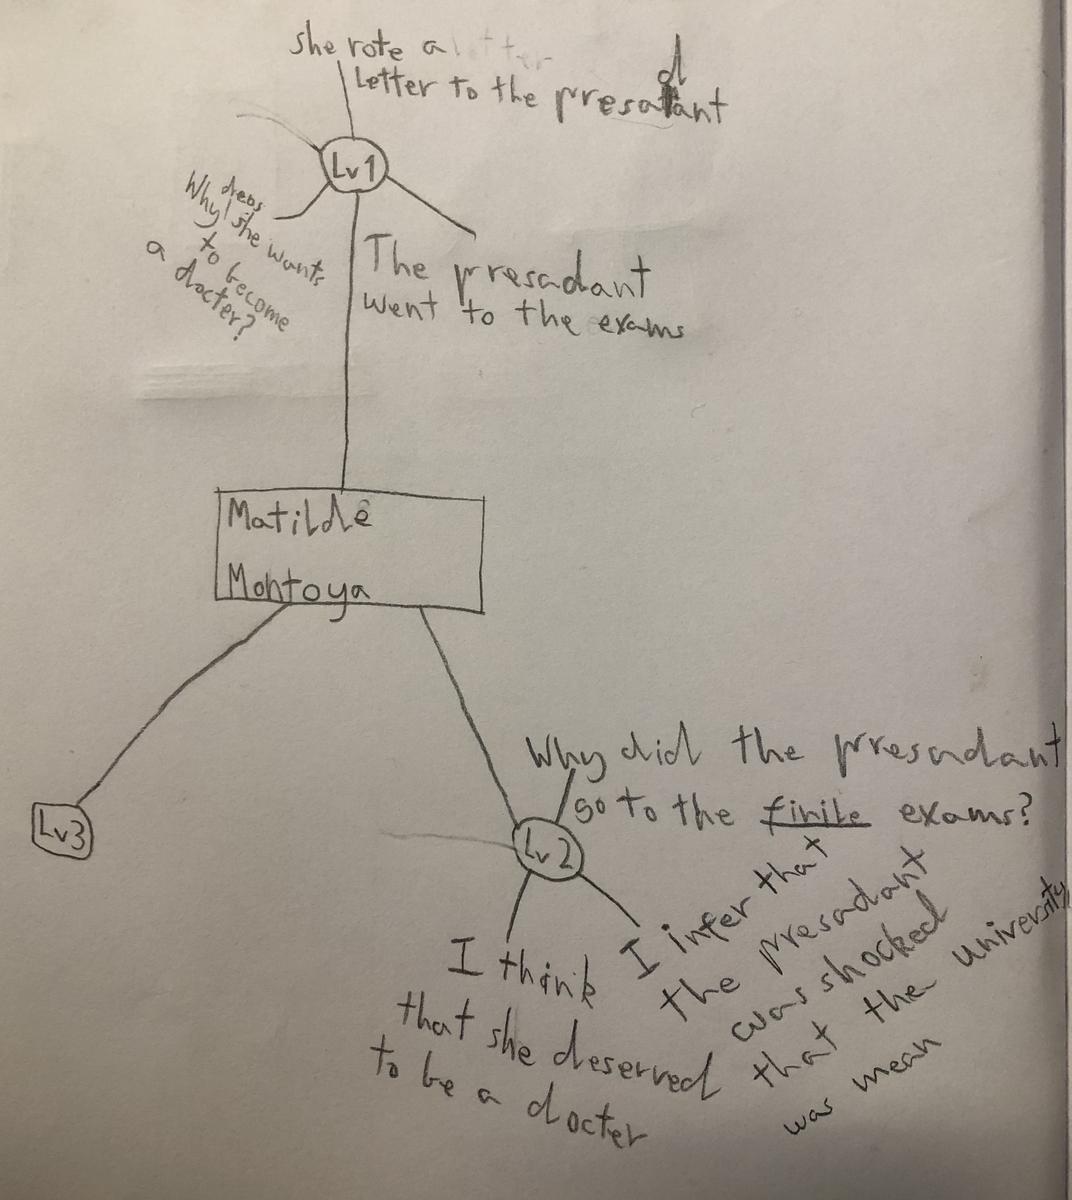 she rote a letter
Letter to the presadant
Lv1
dreas
Why she wants
to become
a docter?
The presadant
went to the exams
Matilde
Montoya
Lv3
Why did the presadant
go to the finile exams?
Lv2
I think
that she deserved
to be a docter
I infer that
the presadant
was shocked
that the university
was mean